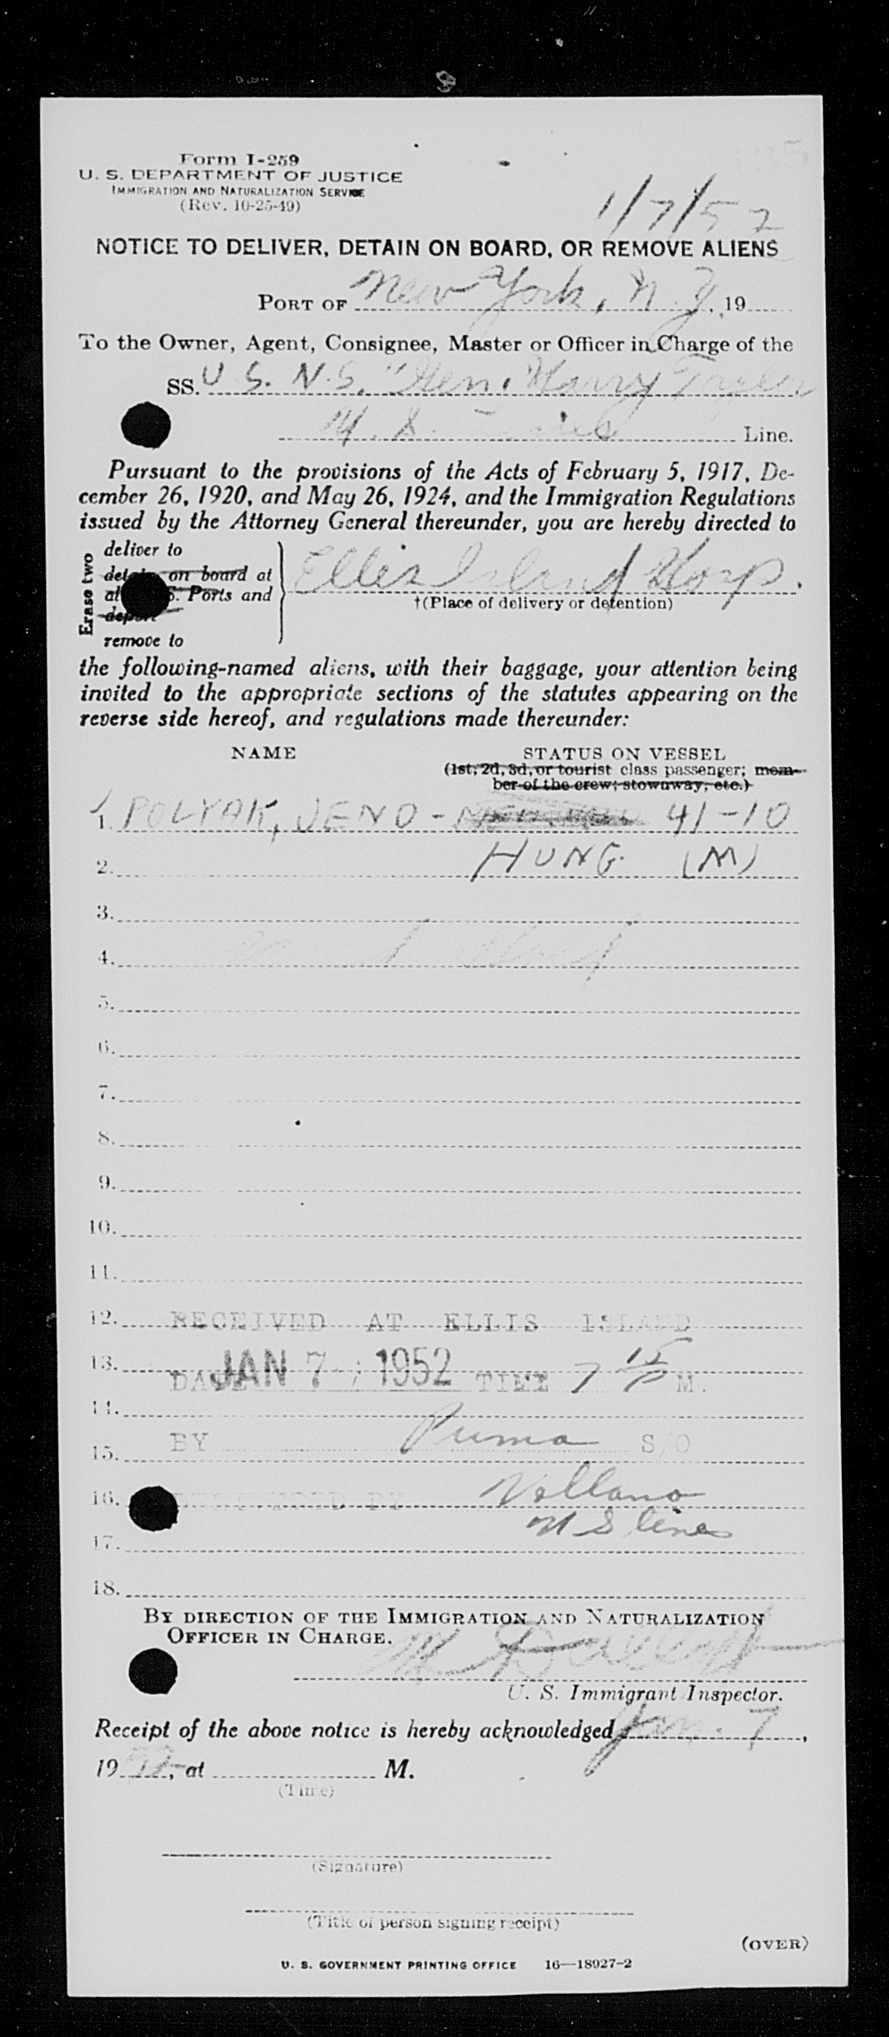 Form I-259
U. S. DEPARTMENT OF JUSTICE
IMMIGRATION AND NATURALIZATION SERVICE
(Rev. 10-25-49)
1/7/52
NOTICE TO DELIVER, DETAIN ON BOARD, OR REMOVE ALIENS
PORT OF New York, N.Y., 19
To the Owner, Agent, Consignee, Master or Officer in Charge of the
SS. U. S. N. S. "Gen. Harry Taylor
M. S. Line.
Pursuant to the provisions of the Acts of February 5, 1917, De-
cember 26, 1920, and May 26, 1924, and the Immigration Regulations
issued by the Attorney General thereunder, you are hereby directed to
Erase two
deliver to
on board at
S. Ports and
deport
remove to
Ellis Island Hosp.
†(Place of delivery or detention)
the following-named aliens, with their baggage, your attention being
invited to the appropriate sections of the statutes appearing on the
reverse side hereof, and regulations made thereunder:
NAME STATUS ON VESSEL
(1st, 2d, 3d, or tourist class passenger; mem-
ber of the crew; stowaway, etc.)
1. POLYAK, JENO - 41-10
2. HUNG. (M)
3.
4.
5.
6.
7.
8.
9.
10.
11.
12. RECEIVED AT ELLIS ISLAND
13. DATE JAN 7 1952 TIME 7 15 P M.
14.
15. BY Puma S/O
16. DELIVERED BY Vellano
17. M S lines
18.
BY DIRECTION OF THE IMMIGRATION AND NATURALIZATION
OFFICER IN CHARGE.
U. S. Immigrant Inspector.
Receipt of the above notice is hereby acknowledged Jan. 7,
19 52, at M.
(Time)
(Signature)
(Title of person signing receipt)
(OVER)
U. S. GOVERNMENT PRINTING OFFICE 16—18927-2